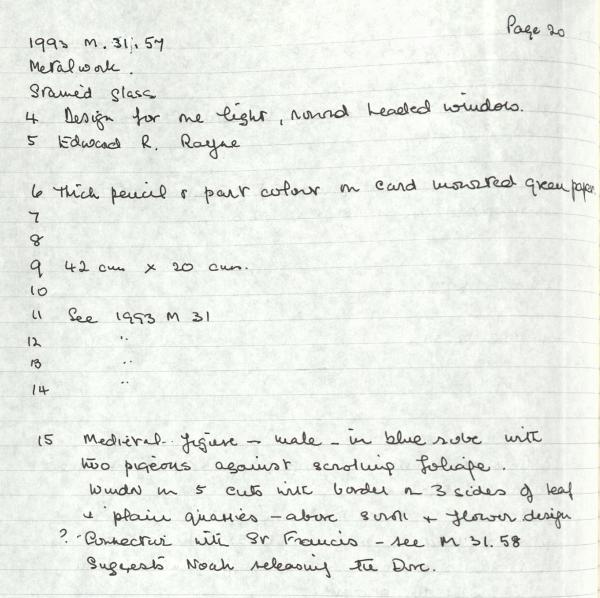 Page 20
1993 M. 31. 57
Metalwork.
Stained glass
4 Design for one light, round headed window.
5 Edward R. Payne
6 Thick pencil & part colour on card mounted green paper.
7
8
9 42 cms x 20 cms.
10
11 See 1993 M 31
12 "
13 "
14 "
15 Medieval figure - male - in blue robe with
two pigeons against scrolling foliage.
Window in 5 cuts with border on 3 sides of leaf
& plain quarries - above scroll & flower design
? Connection with St Francis - see M 31.58
Suggests Noah releasing the Dove.